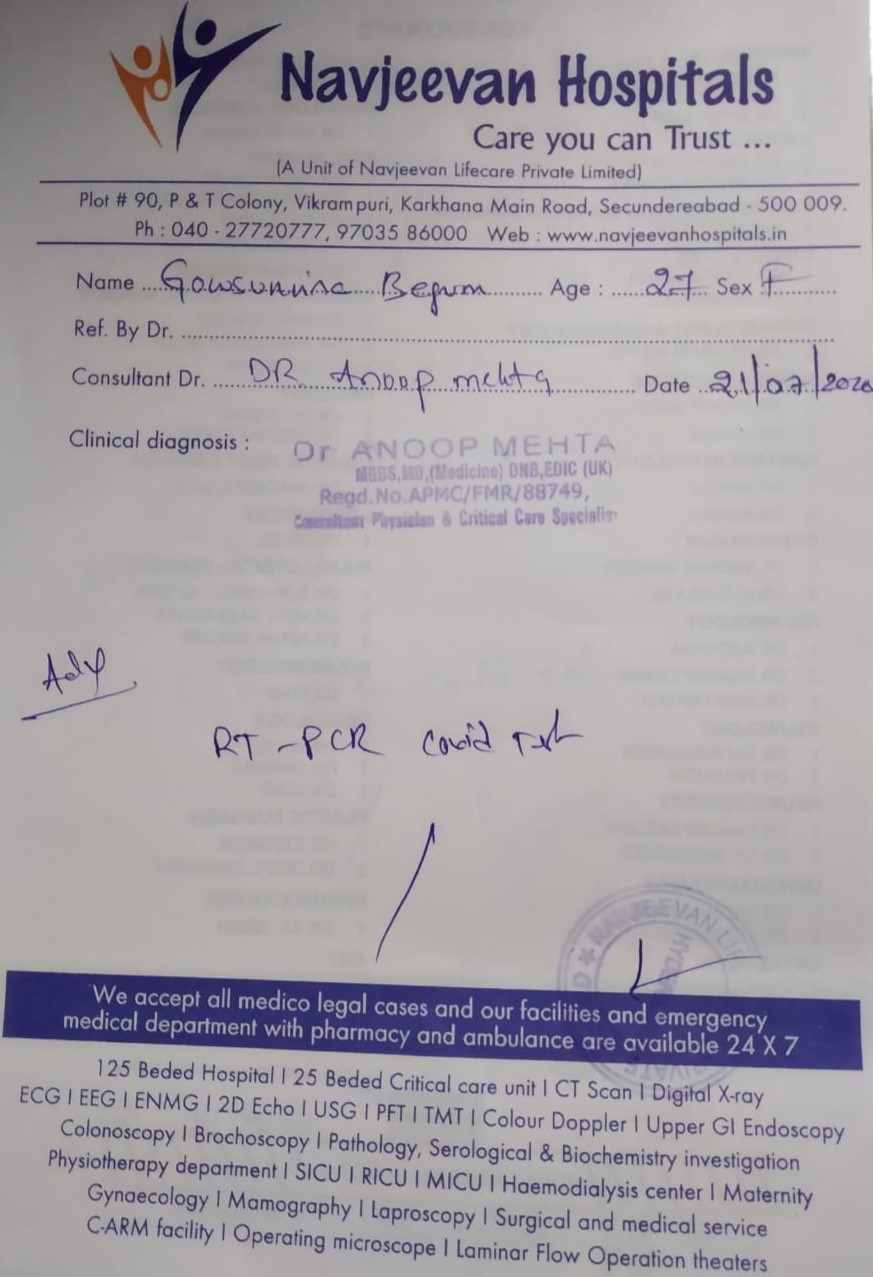 Navjeevan Hospitals
Care you can Trust ...
(A Unit of Navjeevan Lifecare Private Limited)
Plot # 90, P & T Colony, Vikrampuri, Karkhana Main Road, Secundereabad - 500 009.
Ph : 040 - 27720777, 97035 86000 Web : www.navjeevanhospitals.in
Name ....Gowsunnisa Begum.......... Age : ......27... Sex F..........
Ref. By Dr. ..........
Consultant Dr. ......DR Anoop mehta............ Date ..21/07/2020
Clinical diagnosis :
Dr ANOOP MEHTA
MBBS,MD,(Medicine) DNB,EDIC (UK)
Regd.No.APMC/FMR/88749,
Consultant Physician & Critical Care Specialist
Adv
RT-PCR Covid Test
NAVJEEVAN
We accept all medico legal cases and our facilities and emergency
medical department with pharmacy and ambulance are available 24 X 7
125 Beded Hospital I 25 Beded Critical care unit I CT Scan I Digital X-ray
ECG I EEG I ENMG I 2D Echo I USG I PFT I TMT I Colour Doppler I Upper GI Endoscopy
Colonoscopy I Brochoscopy I Pathology, Serological & Biochemistry investigation
Physiotherapy department I SICU I RICU I MICU I Haemodialysis center I Maternity
Gynaecology I Mamography I Laproscopy I Surgical and medical service
C-ARM facility I Operating microscope I Laminar Flow Operation theaters